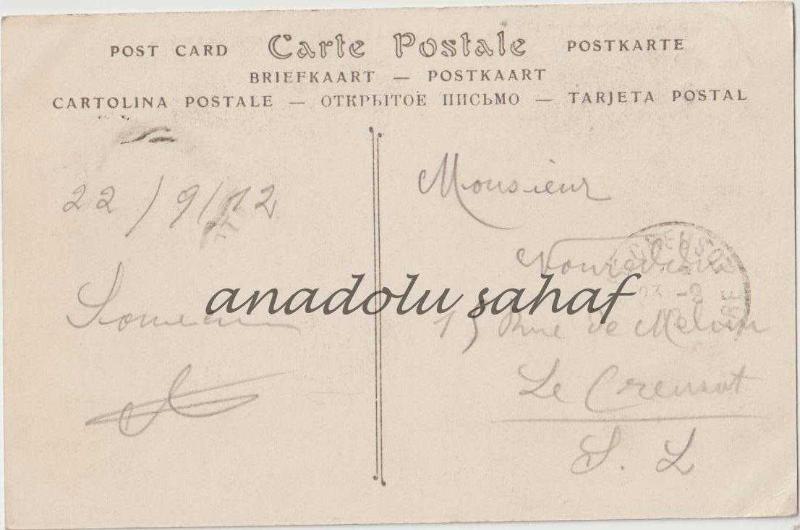 POST CARD Carte Postale POSTKARTE
BRIEFKAART — POSTKAART
CARTOLINA POSTALE — ОТКРЫТОЕ ПИСЬМО — TARJETA POSTAL
22/9/12
Monsieur
anadolu sahaf
Rue de
Le Creusot
S. L